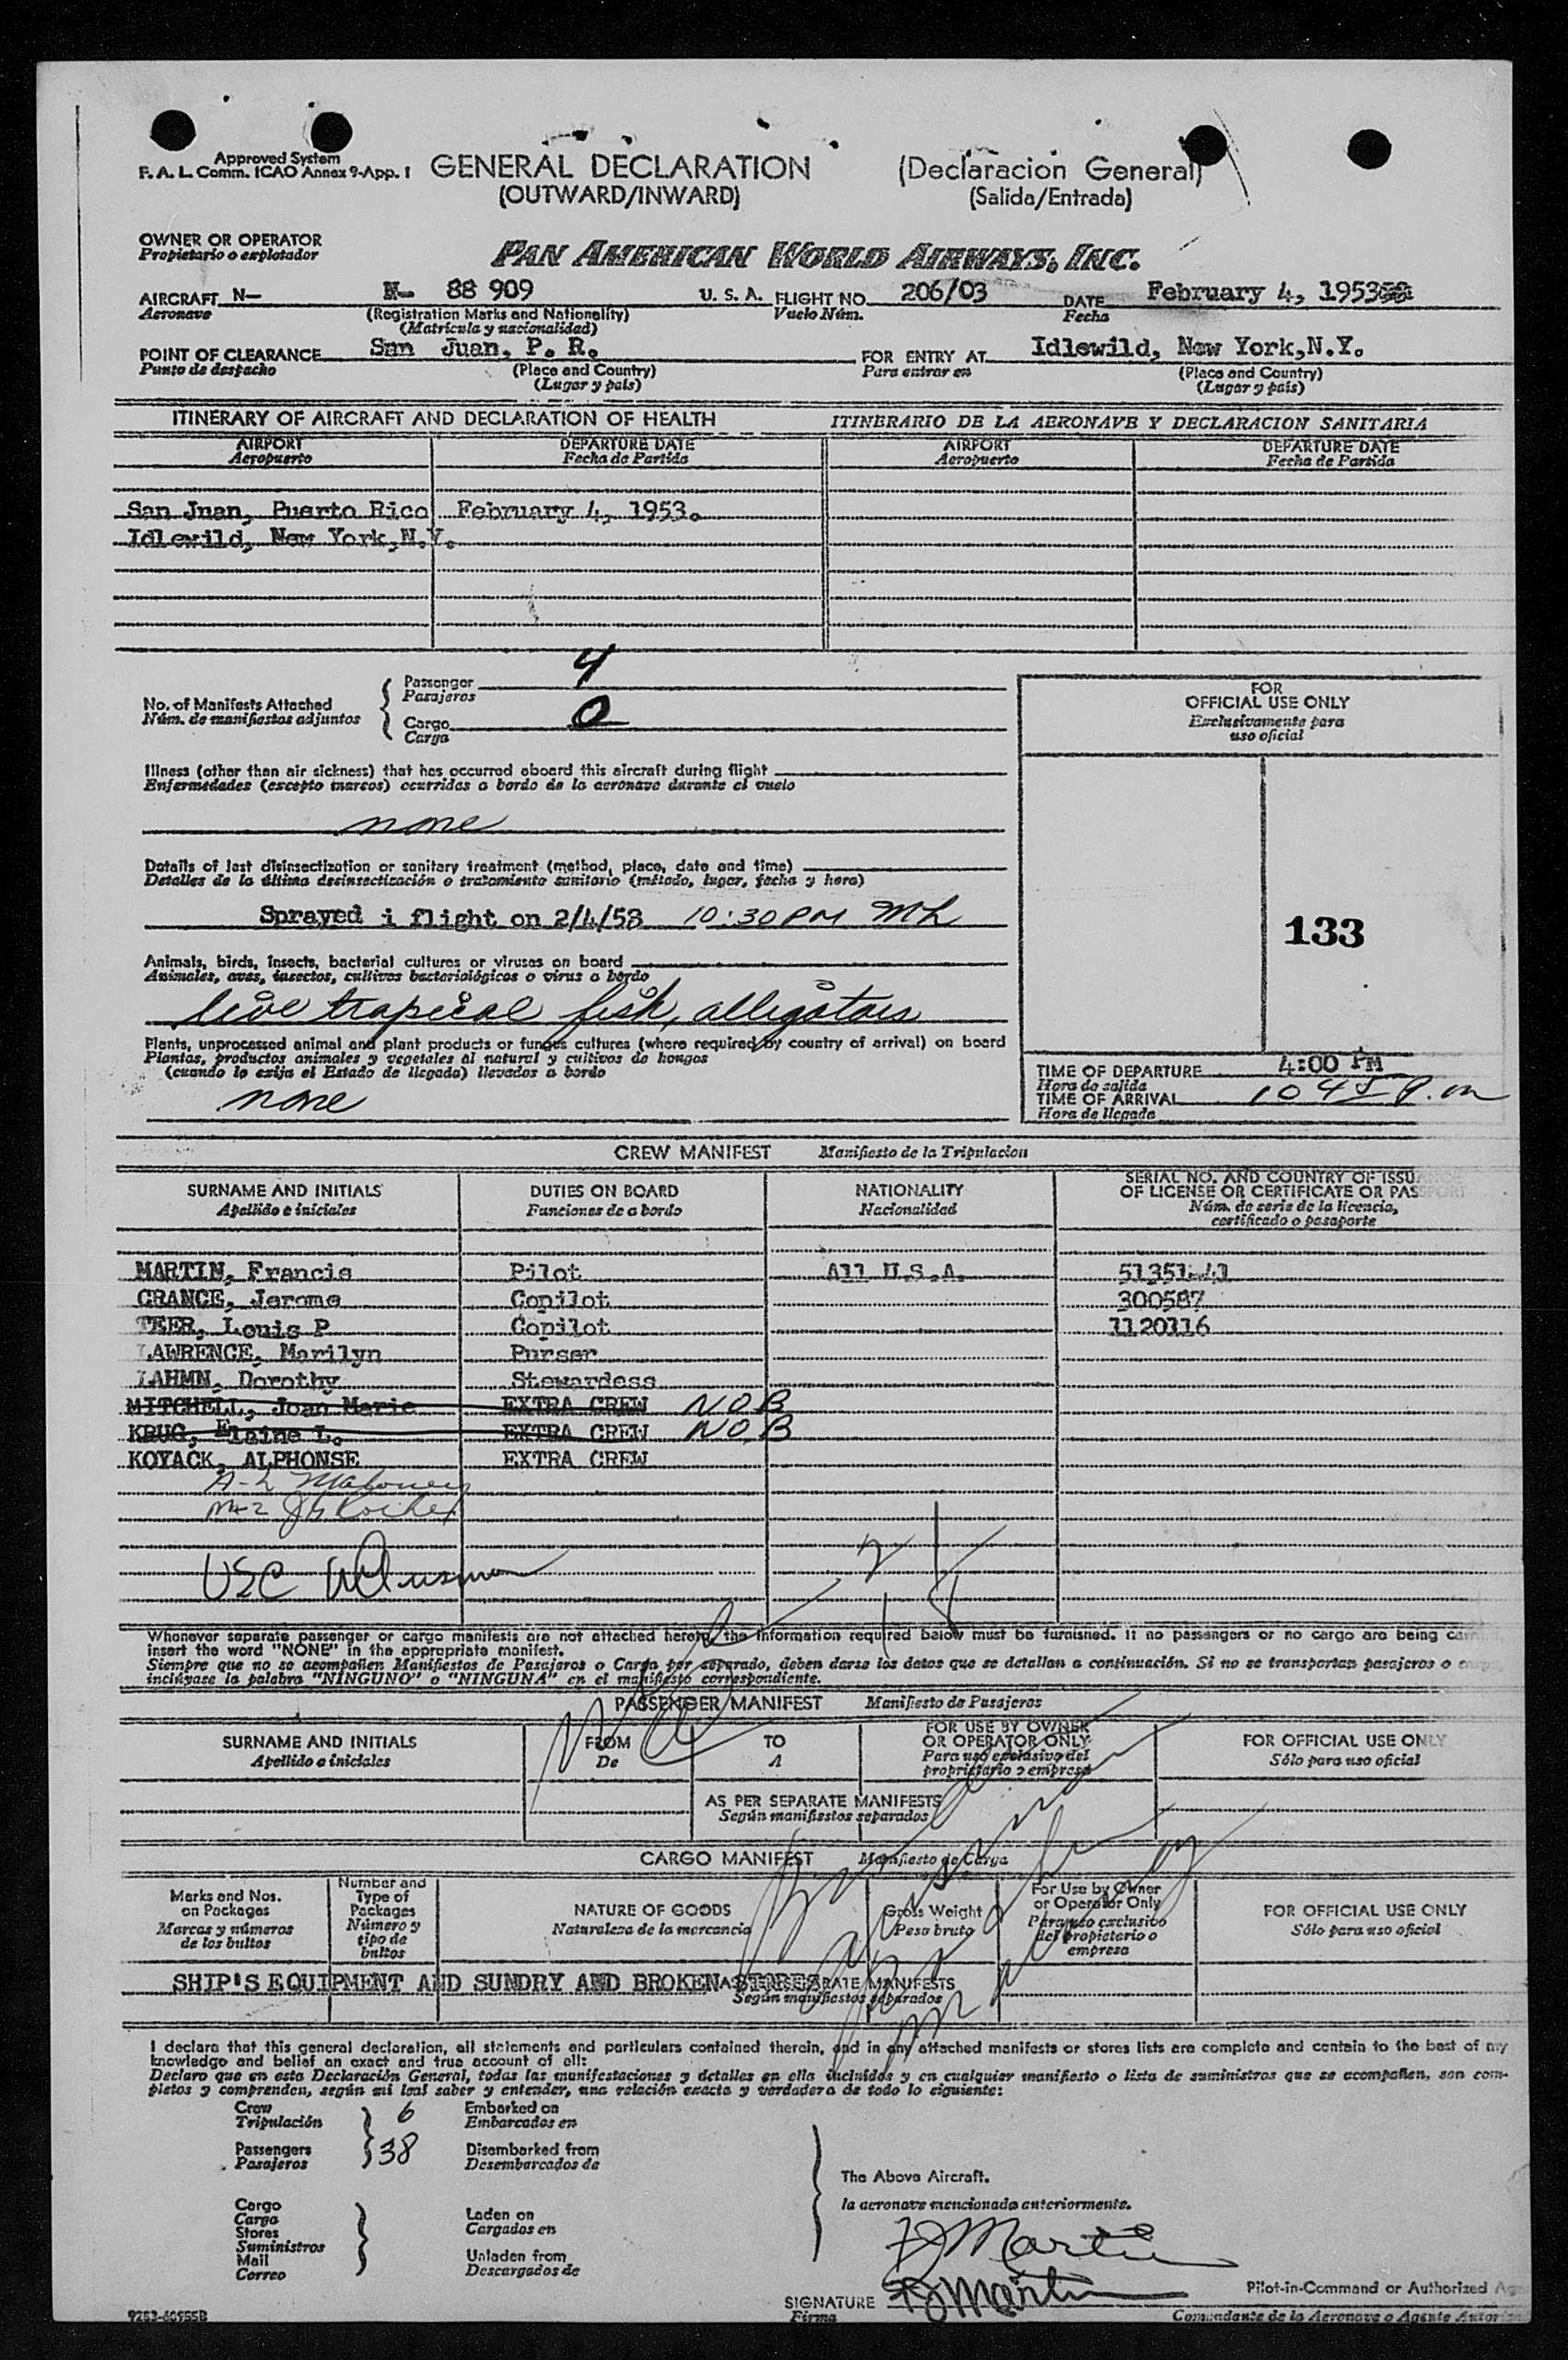 Approved System
F. A. L. Comm. ICAO Annex 9-App. 1
GENERAL DECLARATION (Declaracion General)
(OUTWARD/INWARD) (Salida/Entrada)
OWNER OR OPERATOR
Propietario o explotador
PAN AMERICAN WORLD AIRWAYS, INC.
AIRCRAFT N— N- 88 909 U. S. A. FLIGHT NO. 206/03 DATE February 4, 1953
Aeronave (Registration Marks and Nationality) Vuelo Núm. Fecha
(Matrícula y nacionalidad)
POINT OF CLEARANCE San Juan, P. R. FOR ENTRY AT Idlewild, New York,N.Y.
Punto de despacho (Place and Country) Para entrar en (Place and Country)
(Lugar y país) (Lugar y país)
ITINERARY OF AIRCRAFT AND DECLARATION OF HEALTH ITINERARIO DE LA AERONAVE Y DECLARACION SANITARIA
AIRPORT DEPARTURE DATE AIRPORT DEPARTURE DATE
Aeropuerto Fecha de Partida Aeropuerto Fecha de Partida
San Juan, Puerto Rico February 4, 1953.
Idlewild, New York,N.Y.
No. of Manifests Attached
Núm. de manifiestos adjuntos
Passenger 4
Pasajeros
Cargo 0
Carga
FOR
OFFICIAL USE ONLY
Exclusivamente para
uso oficial
Illness (other than air sickness) that has occurred aboard this aircraft during flight
Enfermedades (excepto mareos) ocurridas a bordo de la aeronave durante el vuelo
none
Details of last disinsectization or sanitary treatment (method, place, date and time)
Detalles de la última desinsectización o tratamiento sanitario (método, lugar, fecha y hora)
Sprayed i flight on 2/4/53 10:30 PM ML
133
Animals, birds, insects, bacterial cultures or viruses on board
Animales, aves, insectos, cultivos bacteriológicos o virus a bordo
live tropical fish, alligators
Plants, unprocessed animal and plant products or fungus cultures (where required by country of arrival) on board
Plantas, productos animales y vegetales al natural y cultivos de hongos
(cuando lo exija el Estado de llegada) llevados a bordo
none
TIME OF DEPARTURE 4:00 PM
Hora de salida
TIME OF ARRIVAL 10 45 P.m
Hora de llegada
CREW MANIFEST Manifiesto de la Tripulacion
SURNAME AND INITIALS DUTIES ON BOARD NATIONALITY SERIAL NO. AND COUNTRY OF ISSUANCE
OF LICENSE OR CERTIFICATE OR PASSPORT
Apellido e iniciales Funciones de a bordo Nacionalidad Núm. de serie de la licencia,
certificado o pasaporte
MARTIN, Francis Pilot All U.S.A. 51351-41
CRANCE, Jerome Copilot 300587
TEER, Louis P Copilot 1120116
LAWRENCE, Marilyn Purser
LAHMN, Dorothy Stewardess
MITCHELL, Joan Marie EXTRA CREW NOB
KRUG, Elaine L. EXTRA CREW NOB
KOYACK, ALPHONSE EXTRA CREW
A-2 Mahoney
USC
Whenever separate passenger or cargo manifests are not attached hereto, the information required below must be furnished. If no passengers or no cargo are being
insert the word "NONE" in the appropriate manifest.
Siempre que no se acompañen Manifiestos de Pasajeros o Carga por separado, deben darse los datos que se detallan a continuación. Si no se transportan pasajeros o
inclúyase la palabra "NINGUNO" o "NINGUNA" en el manifiesto correspondiente.
PASSENGER MANIFEST Manifiesto de Pasajeros
SURNAME AND INITIALS FROM TO FOR USE BY OWNER
OR OPERATOR ONLY FOR OFFICIAL USE ONLY
Apellido e iniciales De A Para uso exclusivo del
propietario o empresa Sólo para uso oficial
AS PER SEPARATE MANIFESTS
Según manifiestos separados
CARGO MANIFEST Manifiesto de Carga
Marks and Nos.
on Packages
Marcas y números
de los bultos
Number and
Type of
Packages
Número y
tipo de
bultos
NATURE OF GOODS
Naturaleza de la mercancía
Gross Weight
Peso bruto
For Use by Owner
or Operator Only
Para uso exclusivo
del propietario o
empresa
FOR OFFICIAL USE ONLY
Sólo para uso oficial
SHIP'S EQUIPMENT AND SUNDRY AND BROKEN STORES
MANIFESTS
Según manifiestos separados
I declare that this general declaration, all statements and particulars contained therein, and in any attached manifests or stores lists are complete and contain to the best of my
knowledge and belief an exact and true account of all:
Declaro que en esta Declaración General, todas las manifestaciones y detalles en ella incluídos y en cualquier manifiesto o lista de suministros que se acompañen, son com-
pletos y comprenden, según mi leal saber y entender, una relación exacta y verdadera de todo lo siguiente:
Crew 6 Embarked on
Tripulación Embarcados en
Passengers 38 Disembarked from
Pasajeros Desembarcados de
The Above Aircraft.
la aeronave mencionada anteriormente.
Cargo
Carga
Stores
Suministros
Mail
Correo
Laden on
Cargados en
Unladen from
Descargados de
FJ Martin
SIGNATURE FJ Martin
Firma
Pilot-in-Command or Authorized
Comandante de la Aeronave o Agente
9283-60955B